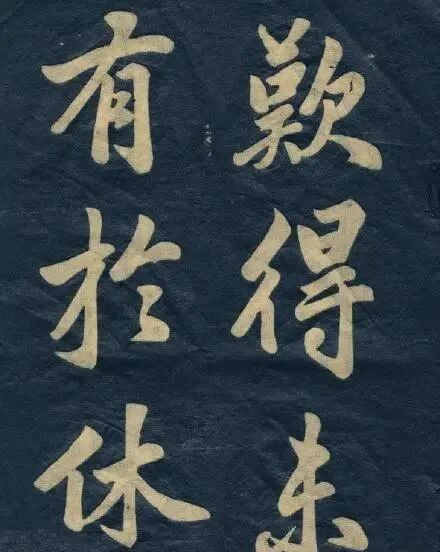 歎得未
有於休